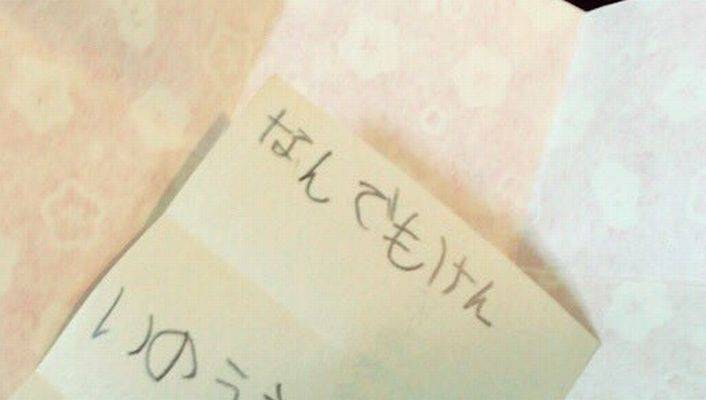 なんでもけん
いのう